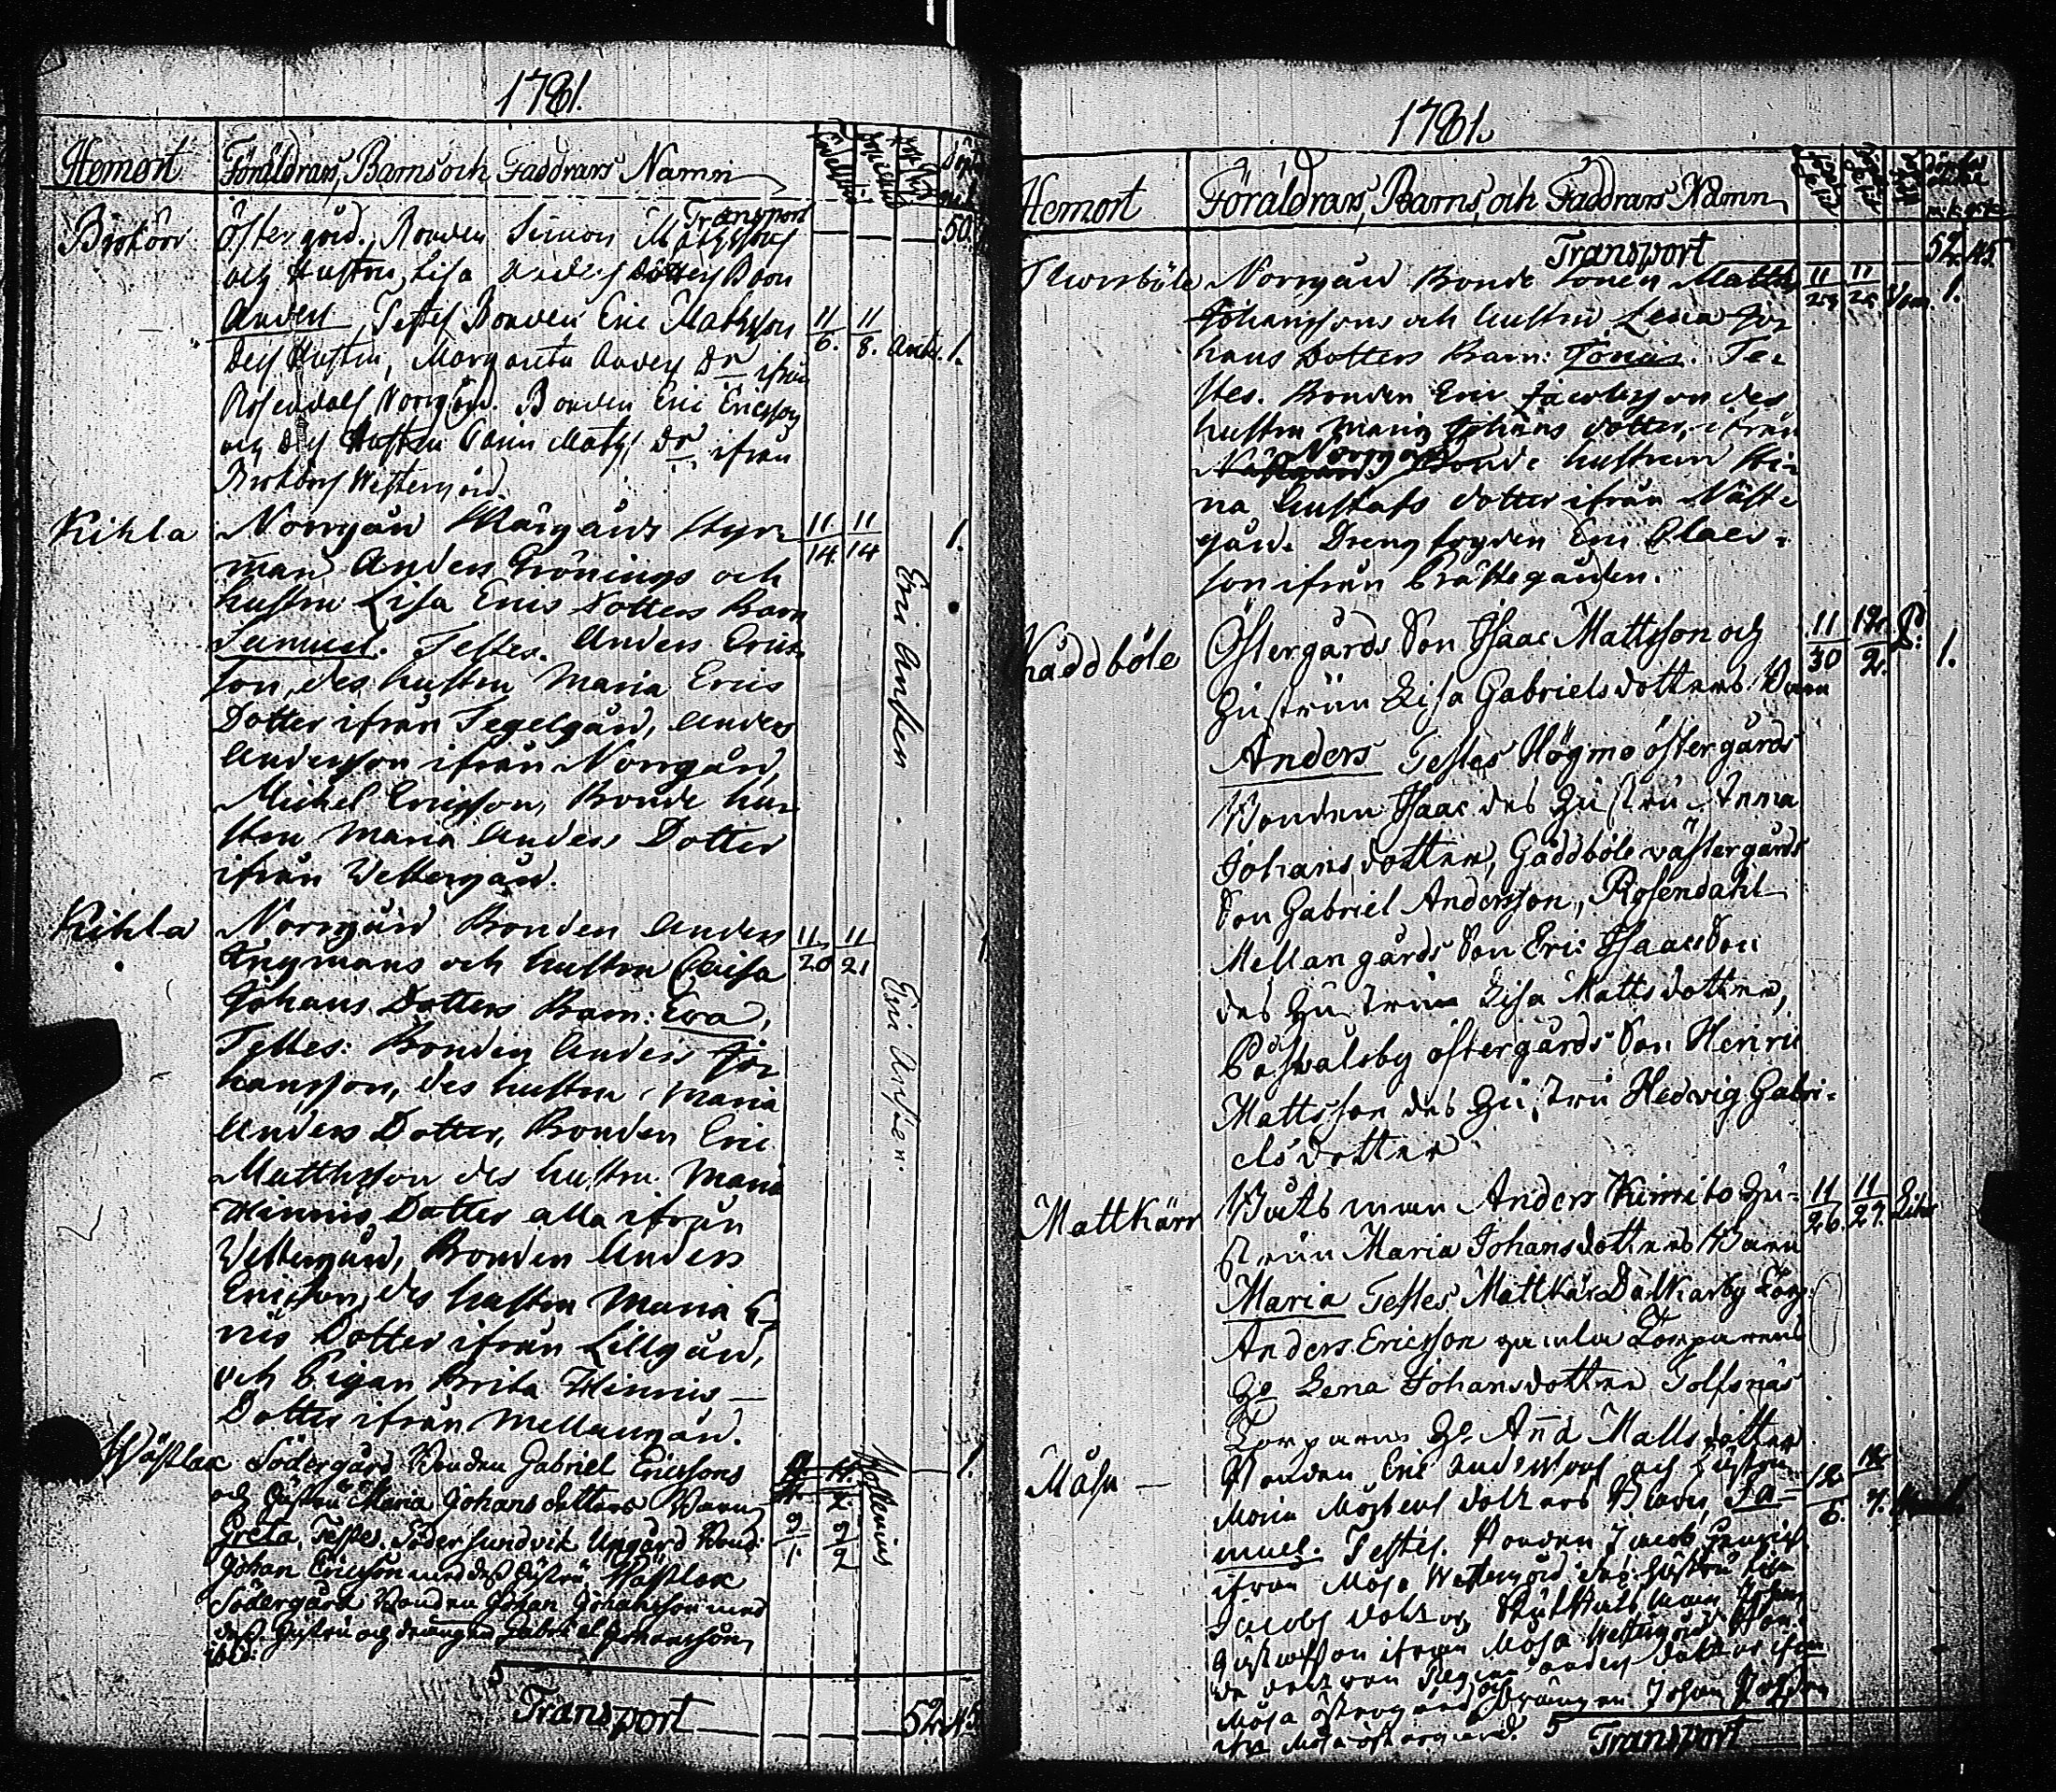 1781.
Hemort Föräldrars, Barns och Faddrars Namn
Transport 50.
Östergård. Bonden Simon Matssons
och Hustru Lisa Anders Dotters Barn
Anders, Testes Bonden Eric Matsson 11/6. 11/8. 1.
des Hustru, Margareta Anders Dr ifrån
Rosendals Norrgård. Bonden Eric Ericsson
och des Hustru Carin Mats Dr ifrån
Westergård.
Kihla Norrgård Styr= 11/14. 11/14 1.
man Anders Grönings och
hustru Lisa Erics Dotters Barn
Samuel. Testes. Anders Erics=
son, des hustru Maria Erics
Dotter ifrån Tegelgård, Anders
Andersson ifrån Norrgård,
Michel Ericsson, Bonde hu=
stru Maria Anders Dotter
ifrån Westergård.
Kihla Norrgård Bonden Anders 11/20 11/21 1
Ingmans och hustru Caisa
Johans Dotters Barn: Eva,
Testes: Bonden Anders Jo=
hansson, des hustru Maria
Anders Dotter, Bonden Eric
Matthsson des hustru Maria
Hinrics Dotter alla ifrån
Westergård, Bonden Anders
Ericson, des hustru Maria E=
rics Dotter ifrån Lillgård,
och Pigan Brita Hinrics
Dotter ifrån Mellangård.
Wästlax Södergård Bonden Gabriel Ericssons 1.
och Hustru Maria Johansdotters Barn
Greta, Testes. Södersundvik Uppgård Bond: 9/1. 9/2
Johan Ericsson med des Hustru Wästlax
Södergård Bonden Johan Johansson med
des Hustru och drängen Gabriel Johansson
ibid:
Eric Ansten
Eric Ansten.
Transport 52. 45.
1781.
Hemort Föräldrars, Barns, och Faddrars Namn
Transport 52. 45.
Norrgård Bonde Sonen Matths 11/29 11/25 1.
Johanssons och hustru Lena Jo=
hans Dotters Barn: Jonas. Te=
stes. Bonden Eric Jacobsson des
hustru Maria Johans dotter, ifrån
Norrgård Bonde hustrun Sti=
na Gustafs dotter ifrån Näst=
gård. Dreng Eric Claes=
son ifrån Prästegården.
Gäddböle Östergårds Son Isaac Mattsson och 11/30 12/2. 1.
Hustrun Lisa Gabrielsdotters Barn
Anders Testes Högmo östergårds
Bonden Isaac des Hustru Anna
Johansdotter, Gäddböle västergårds
Son Gabriel Andersson, Rosendahl
Mellangårds Son Eric Isaacsson
des Hustru Lisa Mattsdotter,
Påswalsby östergårds Son Henric
Mattsson des Hustru Hedvig Gabri=
elsdotter
Mattkärr Båtsman Anders Kimito Hu= 11/26. 11/27.
strun Maria Johansdotters Barn
Maria Testes Mattkär Dalkarby Torp:
Anders Ericsson gamla Torparens
Ho Lena Johansdotter Tolfsnäs
Torparns Ho Anna Mattsdotter
Måsa Bonden Eric Anderssons och Hustru 12/6. 12/7.
Maria Mårtens dotters Barn, Sa=
muel. Testes. Bonden Jacob
ifrån Måsa Westergård des Hustru Lisa
Jacobs dotter, Johan
Gustafsson ifrån Måsa Westergård Bon=
de dottren Regina Anders dotter ifrån
Måsa östergård och drängen Johan
ifrån Måsa östergård.
5 Transport